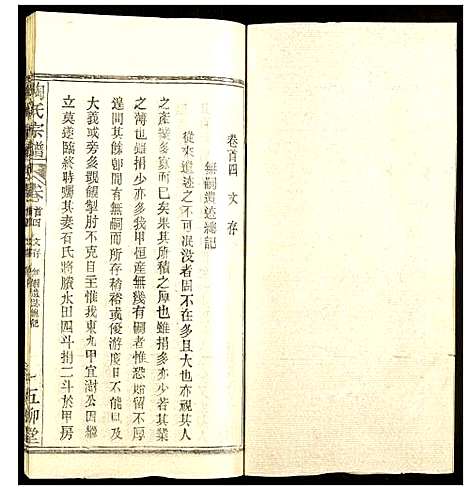 卷首四 文存
無嗣遺述總記
從來遺迹之不可泯没者固不在多且大也亦視其人
之產業多寡而已矣果其所積之厚也雖捐少亦多其業
之薄也雖捐少亦多我甲恒產無幾有嗣者惟恐貽留不厚
遑間其餘卽間有無嗣而所存稍裕或優游度日不能及
大義或旁多覬覦掣肘不克自主惟我東九甲宜澍公因繼
立莫遂臨終時囑其妻石氏將腴水田四斗捐二斗於甲房
陶氏宗譜
卷首四 文存 無嗣遺述總記
五柳堂